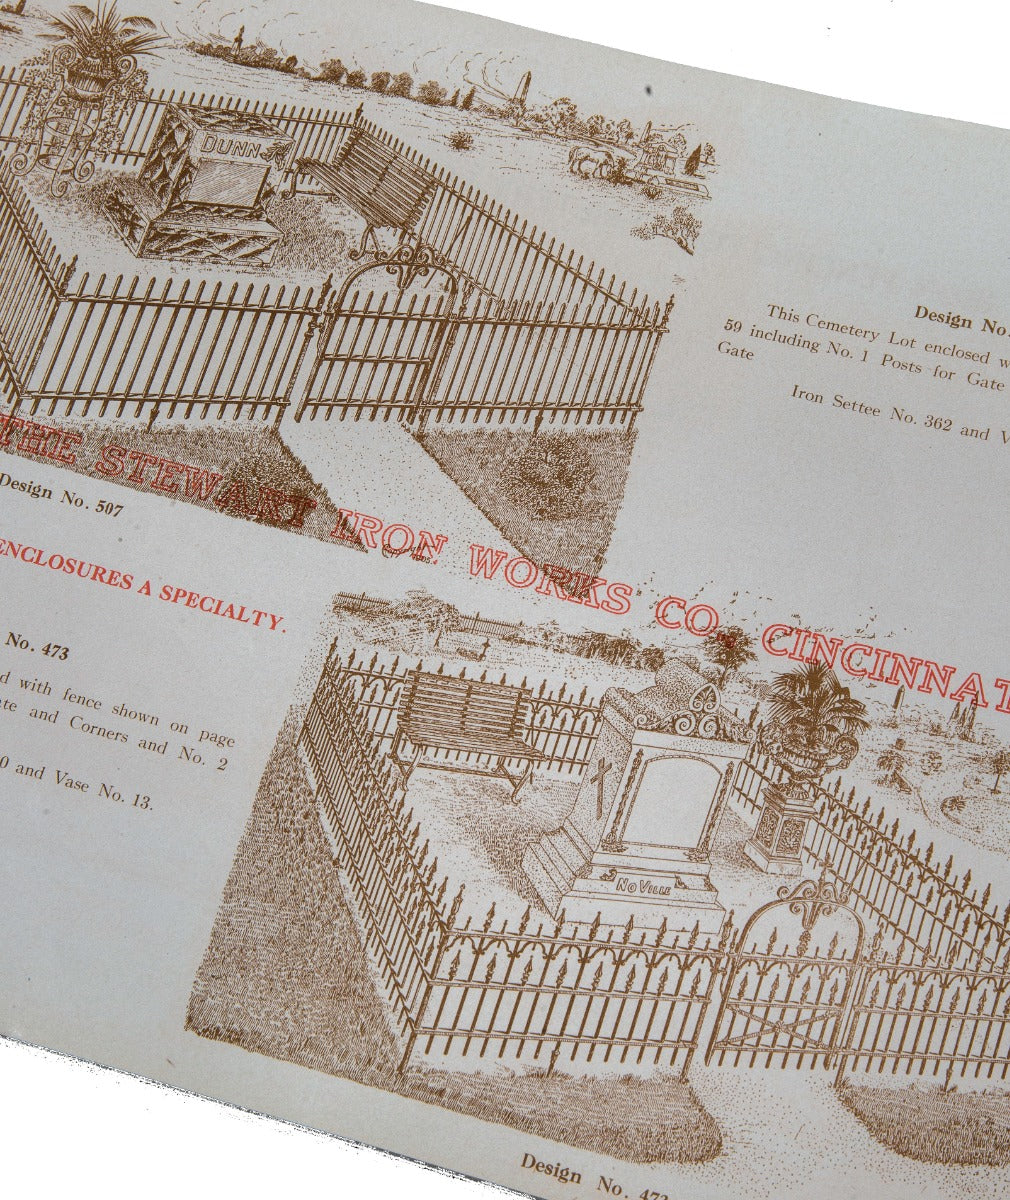 DUNN
Design No.
This Cemetery Lot enclosed
59 including No. 1 Posts for Gate
Gate
Iron Settee No. 362 and
THE STEWART IRON WORKS CO., CINCINNAT
Design No. 507
ENCLOSURES A SPECIALTY.
No. 473
d with fence shown on page
ate and Corners and No. 2
0 and Vase No. 13.
NOVILLE
Design No. 473